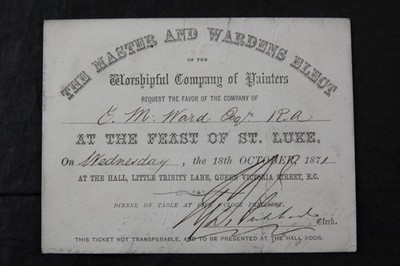 THE MASTER AND WARDENS ELECT
OF THE
Worshipful Company of Painters
REQUEST THE FAVOR OF THE COMPANY OF
E. M. Ward Esqr R.A
AT THE FEAST OF ST. LUKE,
On Wednesday, the 18th OCTOBER, 1871
AT THE HALL, LITTLE TRINITY LANE, QUEEN VICTORIA STREET, E.C.
DINNER ON TABLE AT O'CLOCK PRECISELY.
Clerk.
THIS TICKET NOT TRANSFERABLE, AND TO BE PRESENTED AT THE HALL DOOR.